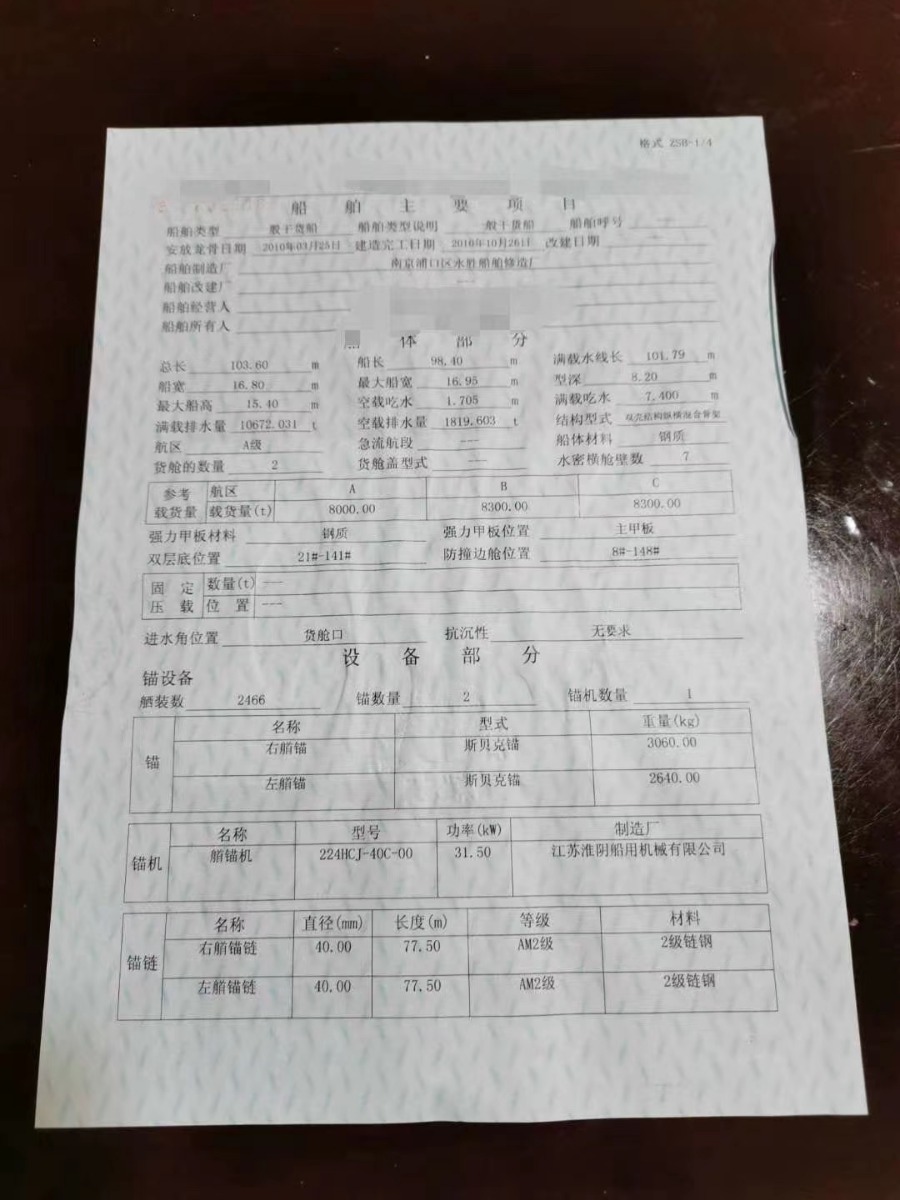 格式 ZSB-1/4
船 舶 主 要 项 目
船舶类型 一般干货船 船舶类型说明 一般干货船 船舶呼号
安放龙骨日期 2010年03月25日 建造完工日期 2010年10月26日 改建日期
船舶制造厂 南京浦口区永胜船舶修造厂
船舶改建厂 ---
船舶经营人
船舶所有人
体 部 分
总长 103.60 m 船长 98.40 m 满载水线长 101.79 m
船宽 16.80 m 最大船宽 16.95 m 型深 8.20 m
最大船高 15.40 m 空载吃水 1.705 m 满载吃水 7.400 m
满载排水量 10672.031 t 空载排水量 1819.603 t 结构型式 双壳结构纵横混合骨架
航区 A级 急流航段 --- 船体材料 钢质
货舱的数量 2 货舱盖型式 --- 水密横舱壁数 7
参考 航区 A B C
载货量 载货量(t) 8000.00 8300.00 8300.00
强力甲板材料 钢质 强力甲板位置 主甲板
双层底位置 21#-141# 防撞边舱位置 8#-148#
固 定 数量(t) ---
压 载 位 置 ---
进水角位置 货舱口 抗沉性 无要求
设 备 部 分
锚设备
舾装数 2466 锚数量 2 锚机数量 1
锚 名称 型式 重量(kg)
右艏锚 斯贝克锚 3060.00
左艏锚 斯贝克锚 2640.00
锚机 名称 型号 功率(kW) 制造厂
艏锚机 224HCJ-40C-00 31.50 江苏淮阴船用机械有限公司
锚链 名称 直径(mm) 长度(m) 等级 材料
右艏锚链 40.00 77.50 AM2级 2级链钢
左艏锚链 40.00 77.50 AM2级 2级链钢